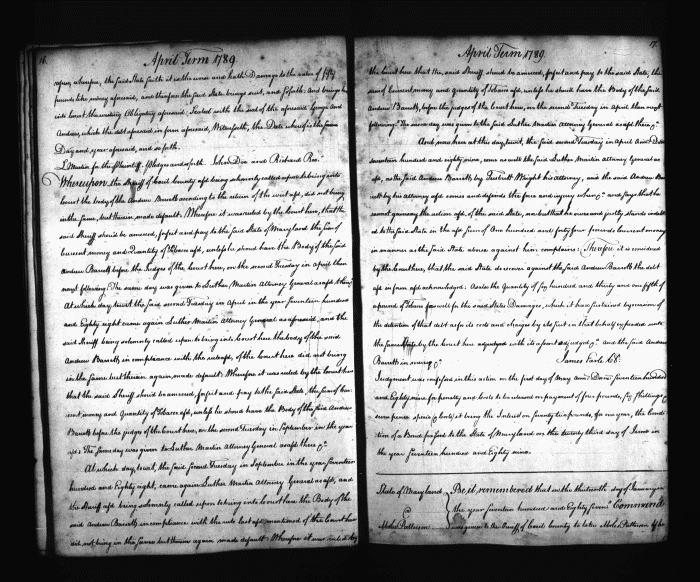 16.
April Term 1789
upon, whereupon, the said State saith it is the worse and hath Damage to the value of fifty
pounds like money aforesaid, and therefore the said State brings suit, and so forth. And brings here
into Court the writing Obligatory aforesaid, Sealed with the seal of the aforesaid George And
Andrew, which the debt aforesaid, in form aforesaid, Witnesseth, the Date whereof is the same
Day and year aforesaid, and so forth.
L. Martin for the Plaintiff, Pledges and so forth. John Doe and Richard Roe.
Whereupon, the Sheriff of Cecil County afd. being solemnly called upon to bring into
Court the body of the Andrew Barratt according to the return of the writ afd., did not bring
in the same, but therein made default. Wherefore it was ruled by the Court here, that the
said Sheriff should be amerced, forfeit and pay to the said State of Maryland the sum of
current money and Quantity of Tobacco afd, unless he should have the Body of the said
Andrew Barratt before the Judges of the Court here, on the second Tuesday in April then
next following. The same day was given to Luther Martin Attorney General as afd there &c.
At which day, to wit, the said second Tuesday in April in the year Seventeen hundred
and Eighty eight came again Luther Martin Attorney General as aforesaid, and the
said Sheriff being solemnly called upon to bring into Court here the body of the said
Andrew Barratt in compliance with the rule afd., of the Court here did not bring
in the same but therein again, made default. Wherefore it was ruled by the Court here
that the said Sheriff should be amerced, forfeit and pay to the said State, the sum of Cur-
rent money and Quantity of Tobacco afd, unless he should have the Body of the said Andrew
Barratt before the judges of the Court here, on the second Tuesday in September in the year
afd: The same day was given to Luther Martin Attorney General as afd there &c.
At which day, to wit, the said Second Tuesday in September in the year Seventeen
hundred and Eighty eight, came again Luther Martin Attorney General as afd, and
the Sheriff afd. being solemnly called upon to bring into Court here the Body of the
said Andrew Barratt in compliance with the rule last afd., mentioned of the Court here
did not bring in the same but therein again made default. Wherefore it was ruled by
17.
April Term 1789.
the Court here that the said Sheriff, should be amerced, forfeit and pay to the said State, the
sum of Current money and Quantity of Tobacco afd, unless he should have the Body of the said
Andrew Barratt, before the Judges of the Court here, on the second Tuesday in April then next
following. The same day was given to the said Luther Martin Attorney General as afd there &c.
And now here at this day, to wit, the said second Tuesday in April Anno Dom
seventeen hundred and eighty nine, came as well the said Luther Martin Attorney General as
afd, as the said Andrew Barratt by Turbutt Wright his attorney, and the said Andrew Barr-
att by his attorney afd. comes and defends the force and injury when &c. and says that he
cannot gainsay the action afd. of the said State, nor but that he owes and justly stands indebted
to the said State in the afd sum of One hundred and forty four pounds current money
in manner as the said State above against him complains: Therefore it is considered
by the Court here, that the said State do recover against the said Andrew Barratt the debt
afd in form afd acknowledged: Also the Quantity of six hundred and thirty and one fifth of
a pound of Tobacco for the said States Damages, which it has sustained by occasion of
the detention of that debt as for its costs and charges by it in its suit in that behalf expended unto
the same State by the Court here adjudged with its assent adjudged &c. and the said Andrew
Barratt in mercy &c. James Earle Clk.
Judgment was confessed in this action on the first day of May Anno Domini Seventeen hundred
and Eighty nine for penalty and costs to be released on payment of four pounds, six shillings &
seven pence specie & costs, it being the Interest on Seventy two pounds, for one year, the Condi-
tion of a Bond passed to the State of Maryland on the twenty third day of June in
the year Seventeen hundred and Eighty nine.
State of Maryland } Be it remembered that on the thirteenth day of January in
} the year Seventeen hundred and Eighty Seven Command
Moses Patterson } was given to the Sheriff of Cecil County to take Moses Patterson if he